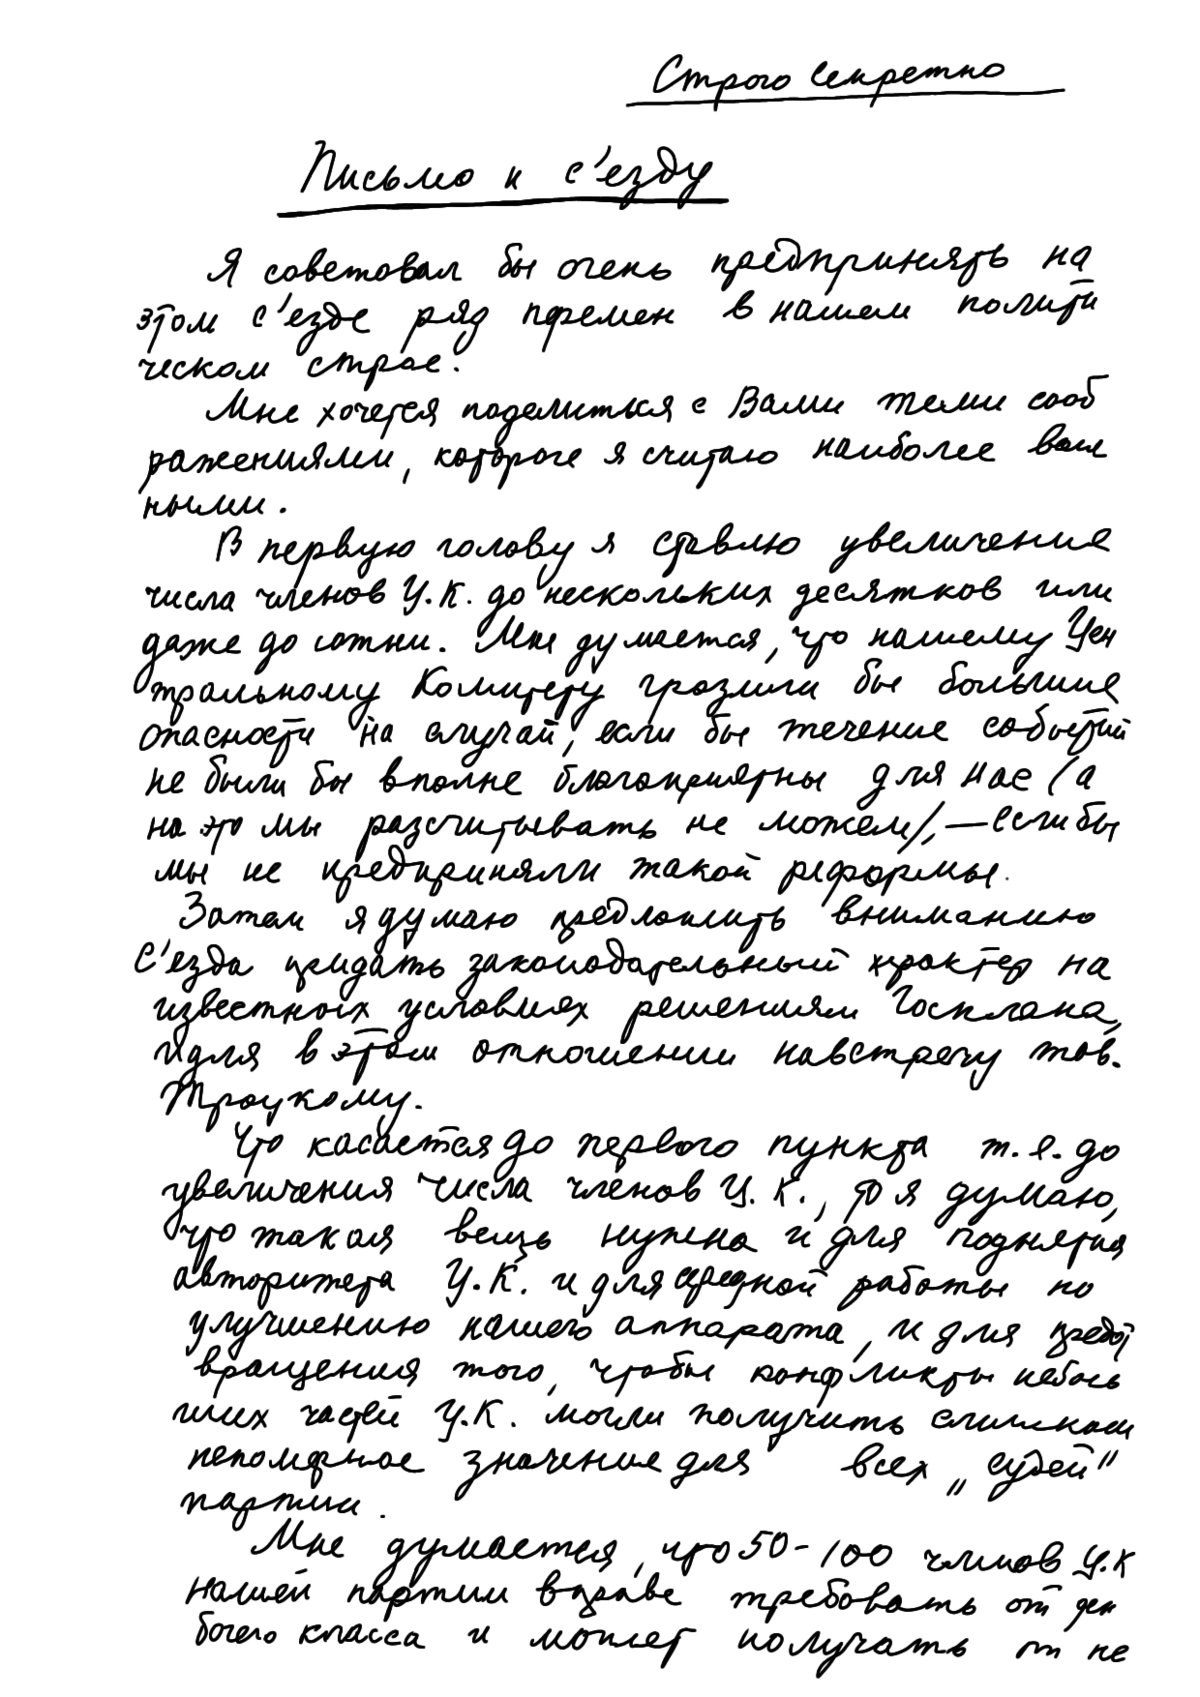 Строго секретно
Письмо к с'езду
Я советовал бы очень предпринять на
этом с'езде ряд перемен в нашем полити
ческом строе.
Мне хочется поделиться с Вами теми сооб
ражениями, которые я считаю наиболее важ
ными.
В первую голову я ставлю увеличение
числа членов Ц.К. до нескольких десятков или
даже до сотни. Мне думается, что нашему Цен
тральному Комитету грозили бы большие
опасности на случай, если бы течение событий
не были бы вполне благоприятны для нас (а
на это мы рассчитывать не можем), — если бы
мы не предприняли такой реформы.
Затем я думаю предложить вниманию
с'езда придать законодательный характер на
известных условиях решениям Госплана,
идя в этом отношении навстречу тов.
Троцкому.
Что касается до первого пункта т.е. до
увеличения числа членов Ц.К., то я думаю,
что такая вещь нужна и для поднятия
авторитета Ц.К. и для работы по
улучшению нашего аппарата, и для предот
вращения того, чтобы конфликты неболь
ших частей Ц.К. могли получить слишком
непомерное значение для всех „судей"
партии.
Мне думается, что 50-100 членов Ц.К
нашей партии вправе требовать от
бочего класса и может получать от не